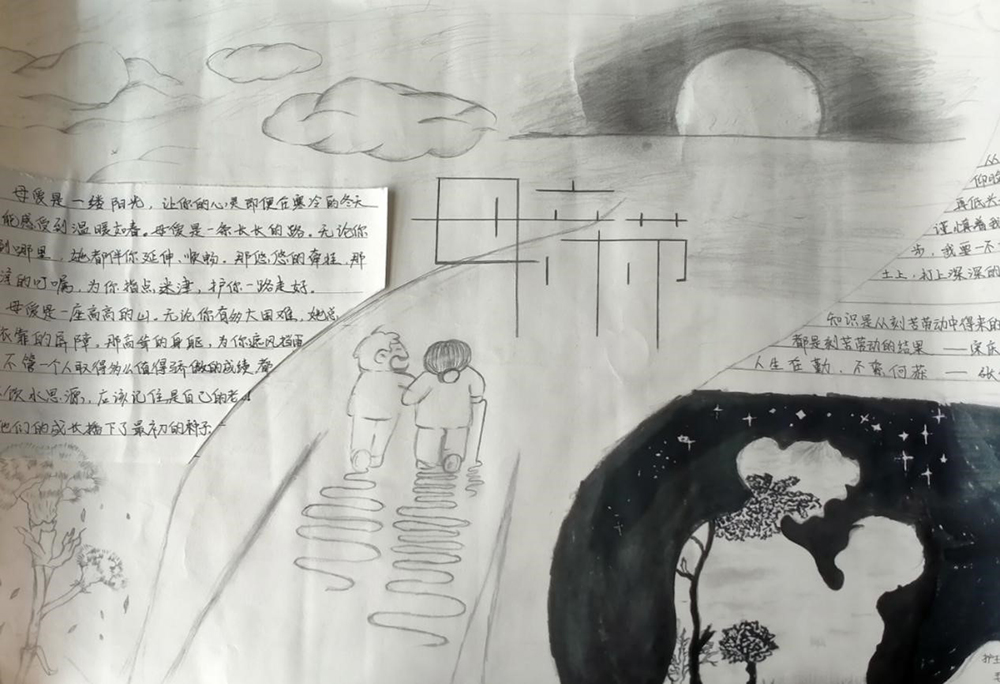 母爱是一缕阳光，让你的心灵即便在寒冷的冬天
能感受到温暖如春。母爱是一条长长的路。无论你
到哪里，她都伴你延伸、顺畅。那悠悠的牵挂，那
的叮嘱，为你指点迷津，护你一路走好。
母爱是一座高高的山。无论你有多大困难，她总
依靠的屏障。那高耸的身躯，为你遮风挡雨
不管一个人取得什么值得骄傲的成绩，都
饮水思源，应该记住是自己的老
他们的成长播下了最初的种子
从
你的
再低
谨慎着我
步，或要不
土上，打上深深的
知识是从刻苦劳动中得来的
都是刻苦劳动的结果 —宋庆
人生在勤，不索何获 — 张
护